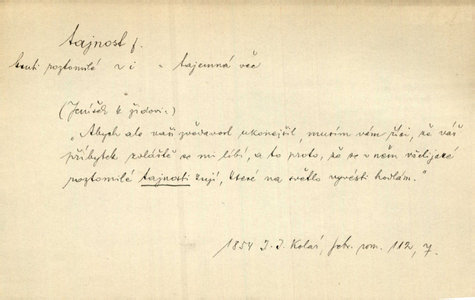 tajnost f.
poztomilé tajemná věc
(Jeníšek k židovi.)
„Abych ale vaši zvědavost ukonejšil, musím vám říci, že váš
příbytek zvláště se mi líbí, a to proto, že se v něm všelijaké
poztomilé tajnosti kují, které na světlo vyvésti hodlám.“
1854 J. J. Kolár, febr. rom. 112, 7.